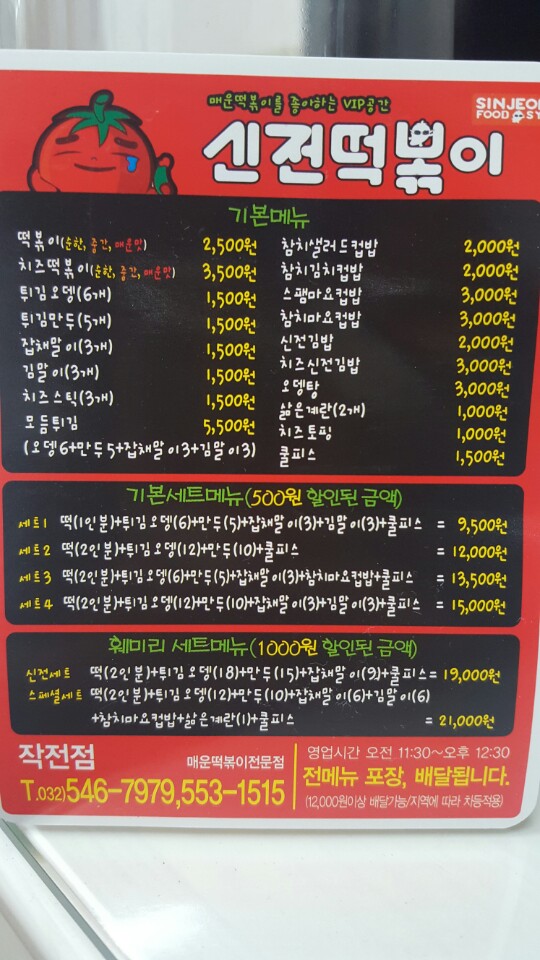 매운떡볶이를 좋아하는 VIP공간
SINJEO
FOOD SY
신전떡볶이
기본메뉴
떡볶이(순한, 중간, 매운맛) 2,500원
치즈떡볶이(순한, 중간, 매운맛) 3,500원
튀김오뎅(6개) 1,500원
튀김만두(5개) 1,500원
잡채말이(3개) 1,500원
김말이(3개) 1,500원
치즈스틱(3개) 1,500원
모듬튀김 5,500원
(오뎅6+만두5+잡채말이3+김말이3)
참치샐러드컵밥 2,000원
참치김치컵밥 2,000원
스팸마요컵밥 3,000원
참치마요컵밥 3,000원
신전김밥 2,000원
치즈신전김밥 3,000원
오뎅탕 3,000원
삶은계란(2개) 1,000원
치즈토핑 1,000원
쿨피스 1,500원
기본세트메뉴(500원 할인된 금액)
세트1 떡(1인분)+튀김오뎅(6)+만두(5)+잡채말이(3)+김말이(3)+쿨피스 = 9,500원
세트2 떡(2인분)+튀김오뎅(12)+만두(10)+쿨피스 = 12,000원
세트3 떡(2인분)+튀김오뎅(6)+만두(5)+잡채말이(3)+참치마요컵밥+쿨피스 = 13,500원
세트4 떡(2인분)+튀김오뎅(12)+만두(10)+잡채말이(3)+김말이(3)+쿨피스 = 15,000원
훼미리 세트메뉴(1000원 할인된 금액)
신전세트 떡(2인분)+튀김오뎅(18)+만두(15)+잡채말이(9)+쿨피스= 19,000원
스페셜세트 떡(2인분)+튀김오뎅(12)+만두(10)+잡채말이(6)+김말이(6)
+참치마요컵밥+삶은계란(1)+쿨피스 = 21,000원
작전점 매운떡볶이전문점
T.032)546-7979,553-1515
영업시간 오전 11:30~오후 12:30
전메뉴 포장, 배달됩니다.
(12,000원이상 배달가능/지역에 따라 차등적용)